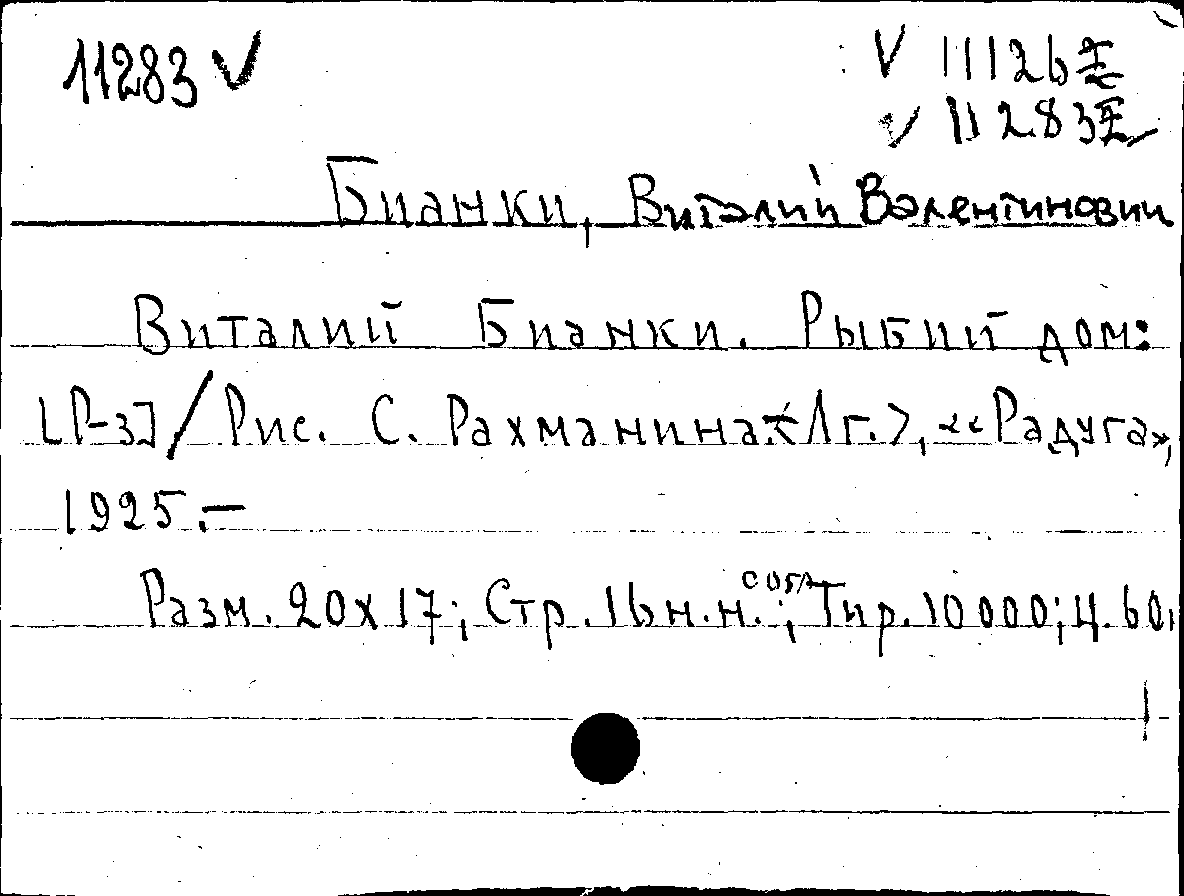 11283 ✓
✓ 11126
✓ 11283
Бианки, Виталий Валентинович
Виталий Бианки. Рыбий дом:
[Р-з] / Рис. С. Рахманина. <Лг.>, «Радуга»,
1925. —
Разм. 20x17; Стр. 16 н.н.; Тир. 10 000; Ц. 60